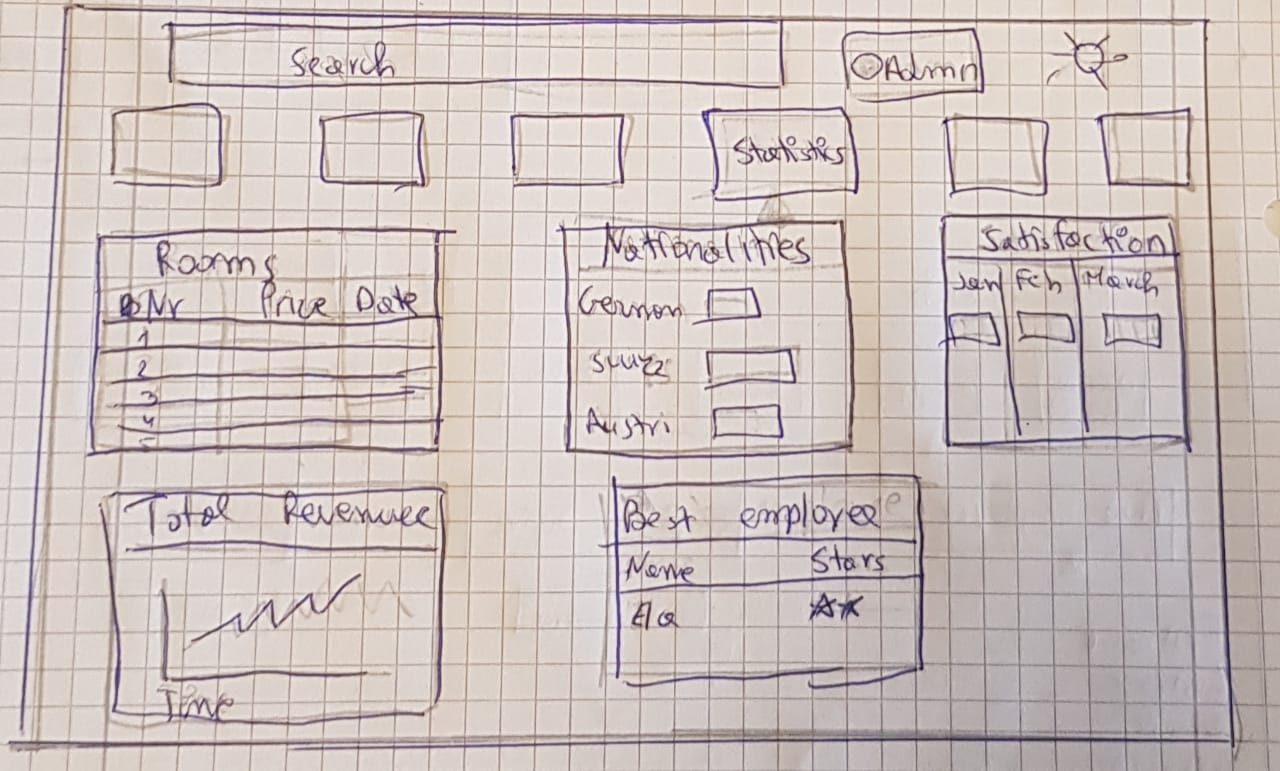 Search
Admn
Statistics
Rooms
Nr Price Date
1
2
3
4
5
Nationalities
German
Austri
Satisfaction
Jan Feh March
Total Revenuee
Time
Best employee
Name Stars
Ela